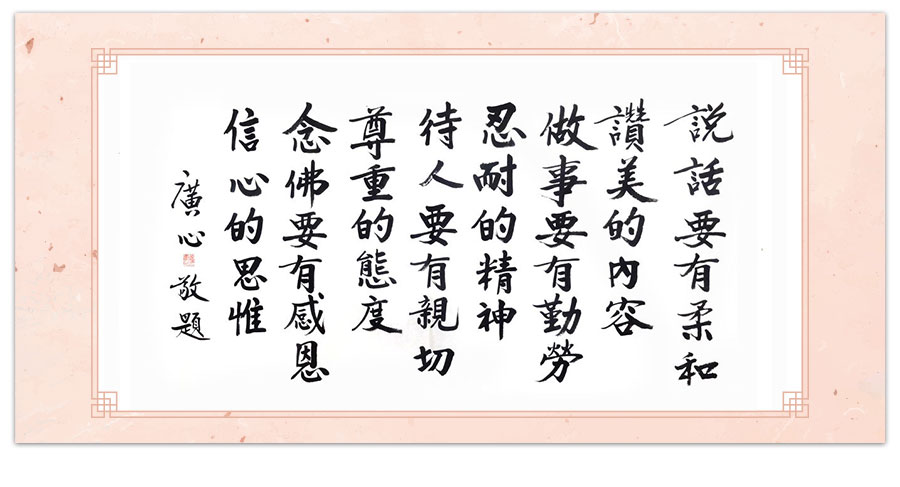 説話要有柔和
讚美的內容
做事要有勤勞
忍耐的精神
待人要有親切
尊重的態度
念佛要有感恩
信心的思惟
廣心敬題